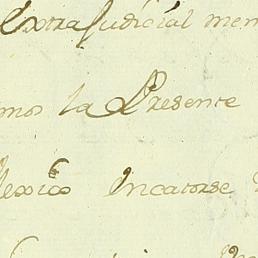 extraJudicial men
mos la Presente
Mexico Incatorse